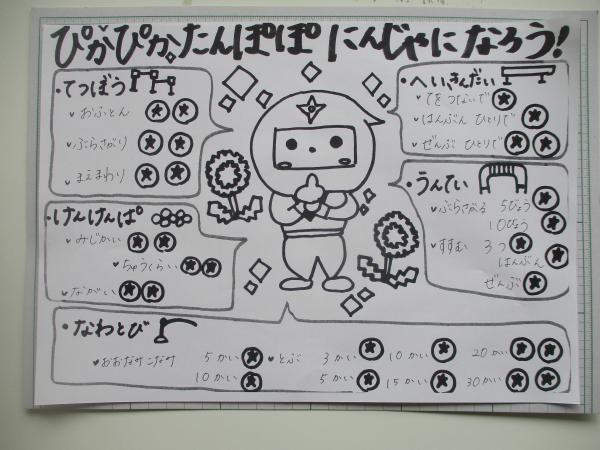 ぴかぴか。たんぽぽ にんじゃになろう!
・てつぼう
♥おふとん
♥ぶらさがり
♥まえまわり
・けんけんぱ
♥みじかい
♥ちゅうくらい
♥ながい
・へいきんだい
♥てをつないで
♥はんぶん ひとりで
♥ぜんぶ ひとりで
・うんてい
♥ぶらさがる 5びょう
10びょう
♥すすむ 3つ
はんぶん
ぜんぶ
・なわとび
♥おおなみこなみ 5かい ♥とぶ 3かい 10かい 20かい
10かい 5かい 15かい 30かい